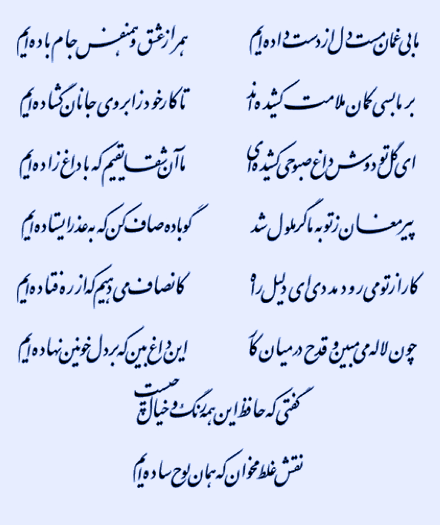 ما بی غمان مست دل از دست داده‌ایم همراز عشق و همنفس جام باده‌ایم
بر ما بسی کمان ملامت کشیده‌اند تا کار خود ز ابروی جانان گشاده‌ایم
ای گل تو دوش داغ صبوحی کشیده‌ای ما آن شقایقیم که با داغ زاده‌ایم
پیر مغان ز توبه ما گر ملول شد گو باده صاف کن که به عذر ایستاده‌ایم
کار از تو می‌رود مددی ای دلیل راه کانصاف می‌دهیم که از ره فتاده‌ایم
چون لاله می مبین و قدح در میان کار این داغ بین که بر دل خونین نهاده‌ایم
گفتی که حافظ این همه رنگ و خیال چیست
نقش غلط مخوان که همان لوح ساده‌ایم